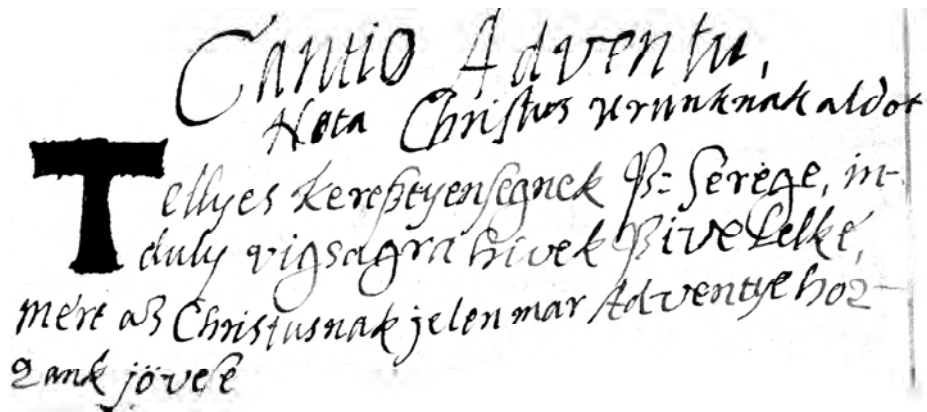 Cantio Adventu,
Nota Christus Urunknak aldot
Tellyes kereßtyensegnek ß: serege, in-
duly vigsagra hivek ßive Lelke,
mert aß Christusnak jelen mar Adventye hoz-
zank jövese